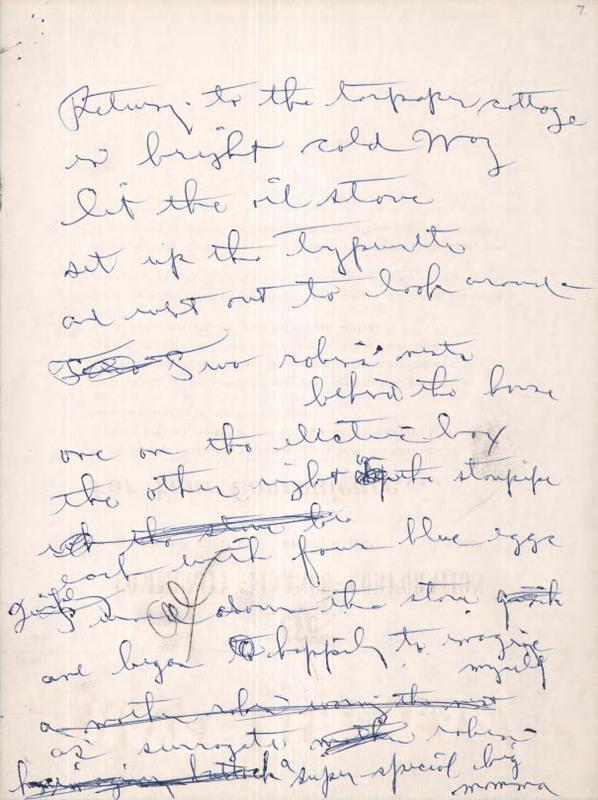 7.
Return to the tarpaper cottage
in bright cold May
lit the oil stove
set up the typewriter
and went out to look around
Two robins' nests
behind the house
one on the electric box
the other right the stovepipe
the stove
each with four blue eggs
down the stove
and began happily to imagine
myself
a mother robin the nest
as surrogate robin
super-special big
momma